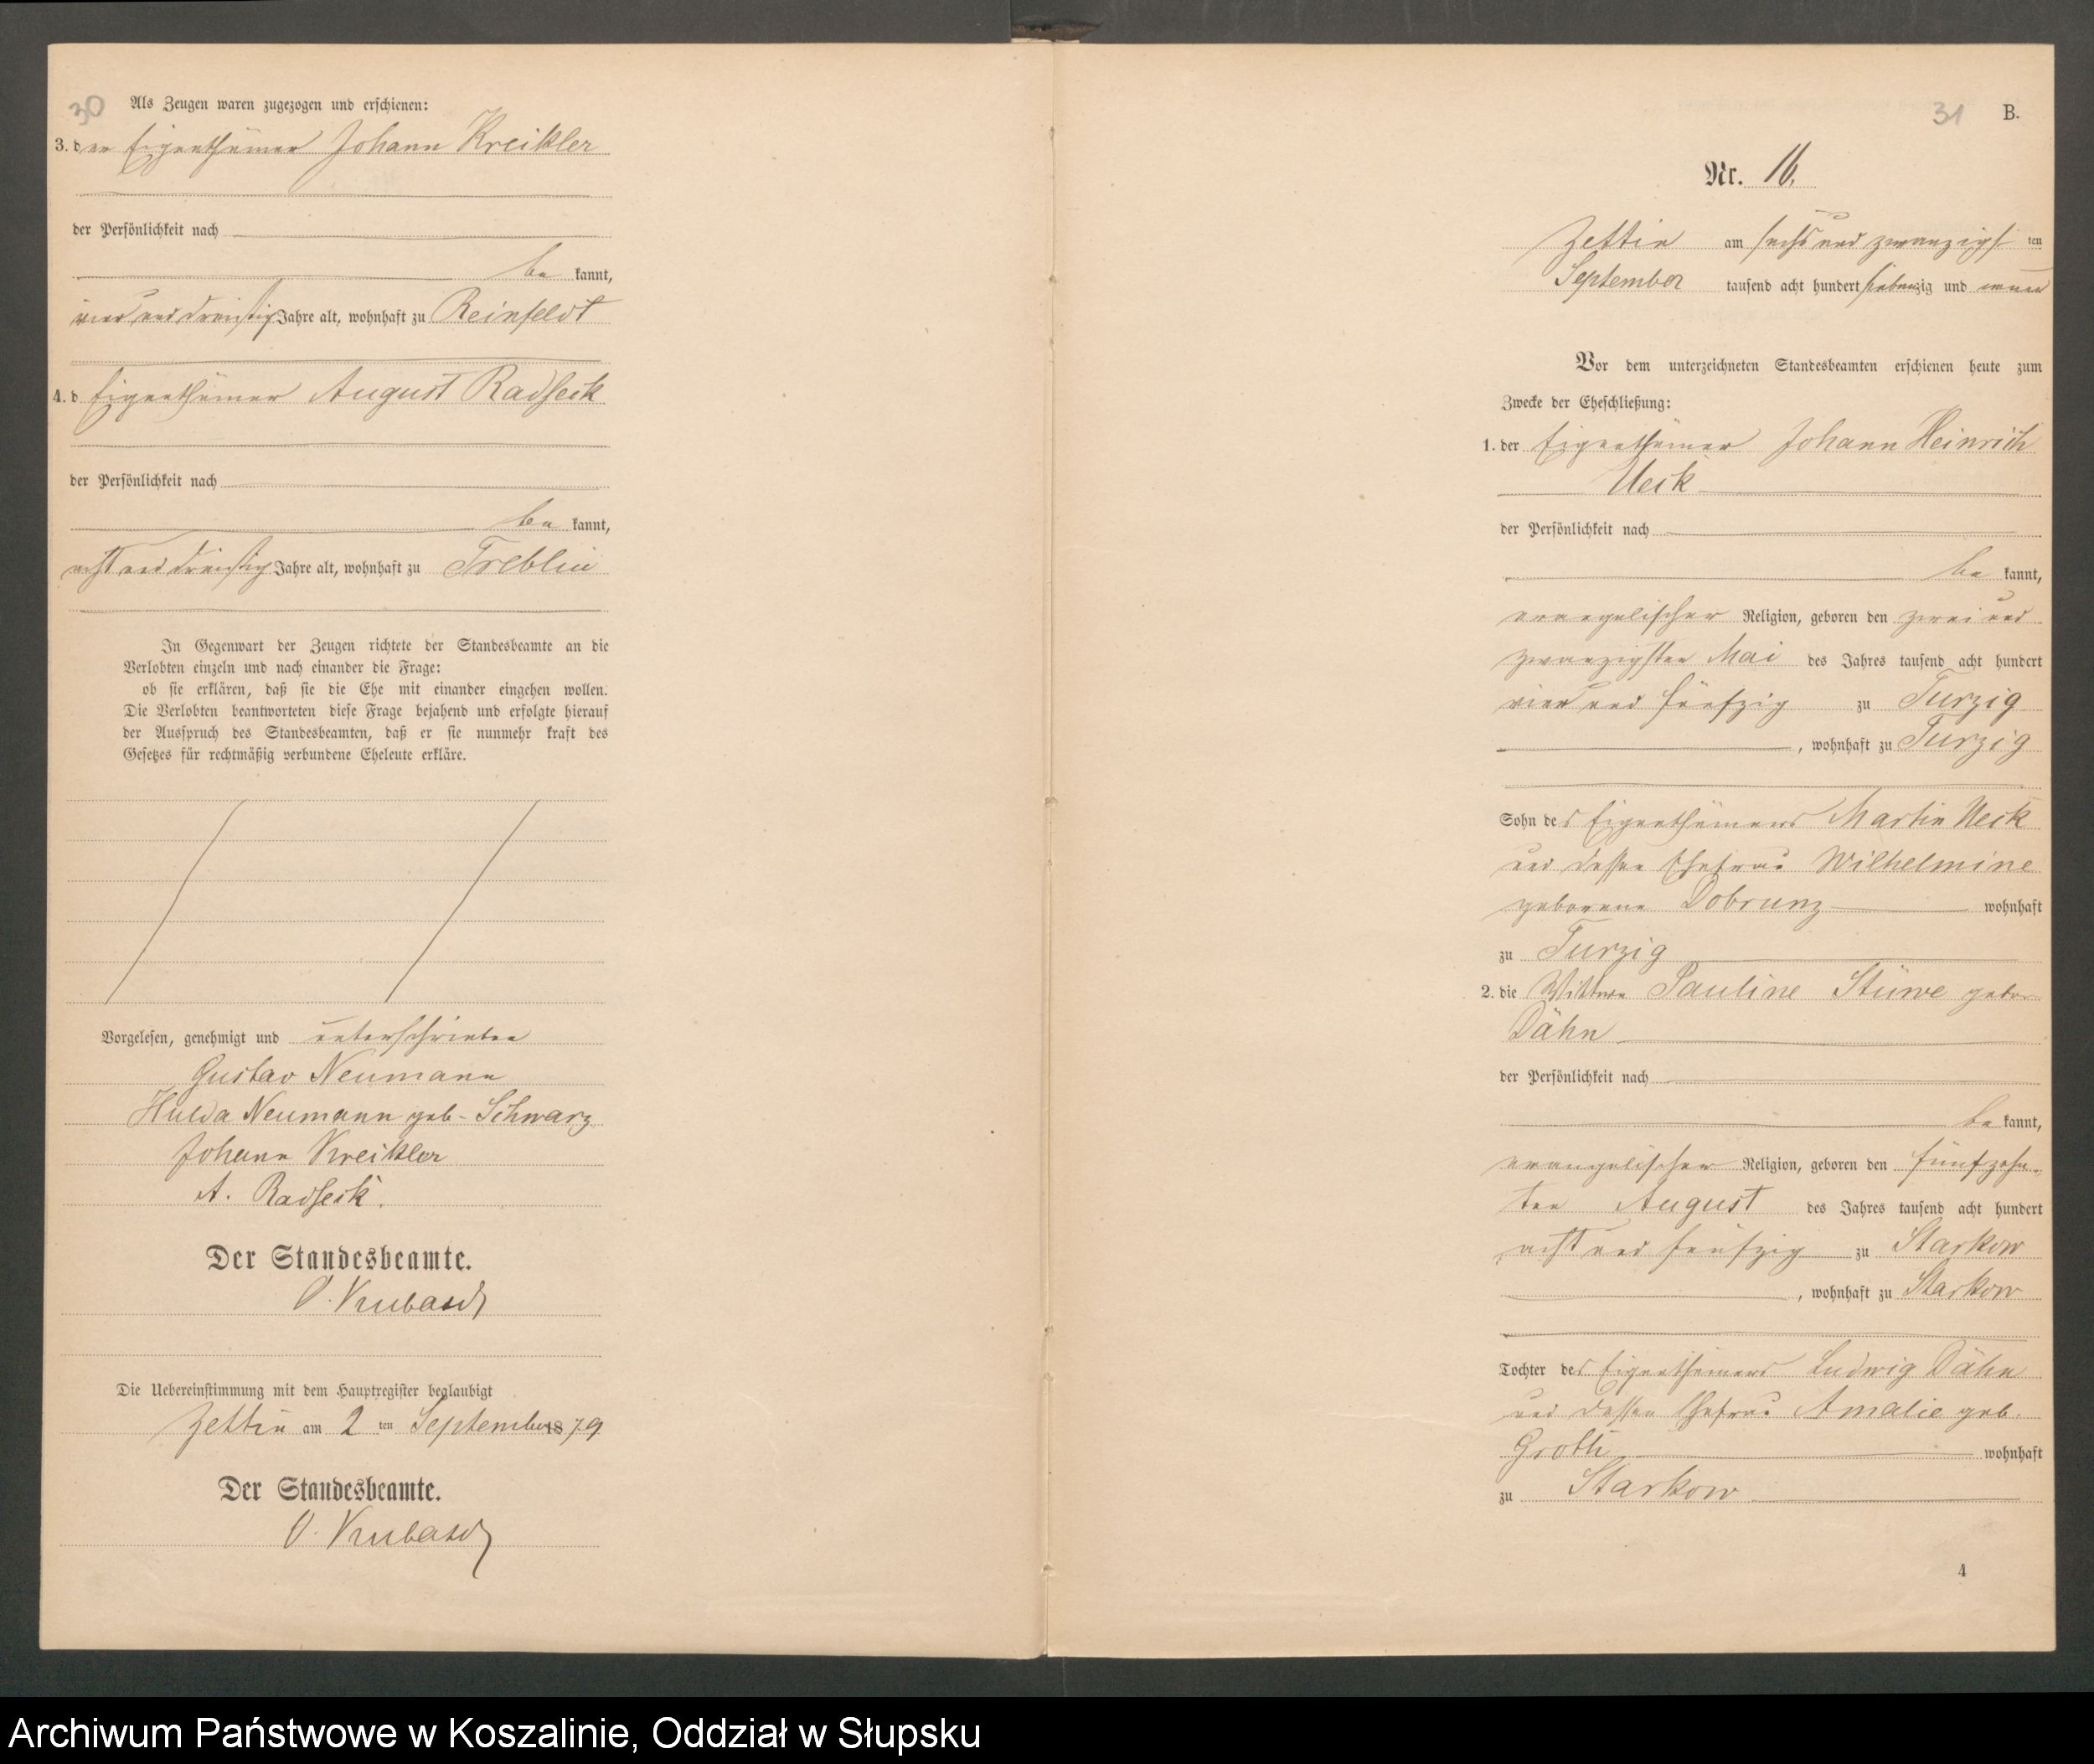 30
Als Zeugen waren zugezogen und erschienen:
3. der Eigenthümer Johann Kreikler
der Persönlichkeit nach
be kannt,
vier und dreißig Jahre alt, wohnhaft zu Reinfeldt
4. d Eigenthümer August Radseck
der Persönlichkeit nach
be kannt,
acht und dreißig Jahre alt, wohnhaft zu Treblin
In Gegenwart der Zeugen richtete der Standesbeamte an die
Verlobten einzeln und nach einander die Frage:
ob sie erklären, daß sie die Ehe mit einander eingehen wollen.
Die Verlobten beantworteten diese Frage bejahend und erfolgte hierauf
der Ausspruch des Standesbeamten, daß er sie nunmehr kraft des
Gesetzes für rechtmäßig verbundene Eheleute erkläre.
Vorgelesen, genehmigt und unterschrieben
Gustav Neumann
Hulda Neumann geb. Schwarz
Johann Kreikler
A. Radseck.
Der Standesbeamte.
O. Krubasch
Die Uebereinstimmung mit dem Hauptregister beglaubigt
Zettin am 2 ten September 1879
Der Standesbeamte.
O. Krubasch
31 B.
Nr. 16.
Zettin am sechs und zwanzigsten
September tausend acht hundert siebenzig und neun
Vor dem unterzeichneten Standesbeamten erschienen heute zum
Zwecke der Eheschließung:
1. der Eigenthümer Johann Heinrich
Ueck
der Persönlichkeit nach
be kannt,
evangelischer Religion, geboren den zwei und
zwanzigsten Mai des Jahres tausend acht hundert
vier und fünfzig zu Turzig
, wohnhaft zu Turzig
Sohn des Eigenthümers Martin Ueck
und dessen Ehefrau Wilhelmine
geborene Dobrunz wohnhaft
zu Turzig
2. die Wittwe Pauline Stüwe gebor
Dähn
der Persönlichkeit nach
be kannt,
evangelischer Religion, geboren den fünfzehn-
ten August des Jahres tausend acht hundert
acht und fünfzig zu Starkow
, wohnhaft zu Starkow
Tochter des Eigenthümers Ludwig Dähn
und dessen Ehefrau Amalie geb.
Groth wohnhaft
zu Starkow
4
Archiwum Państwowe w Koszalinie, Oddział w Słupsku